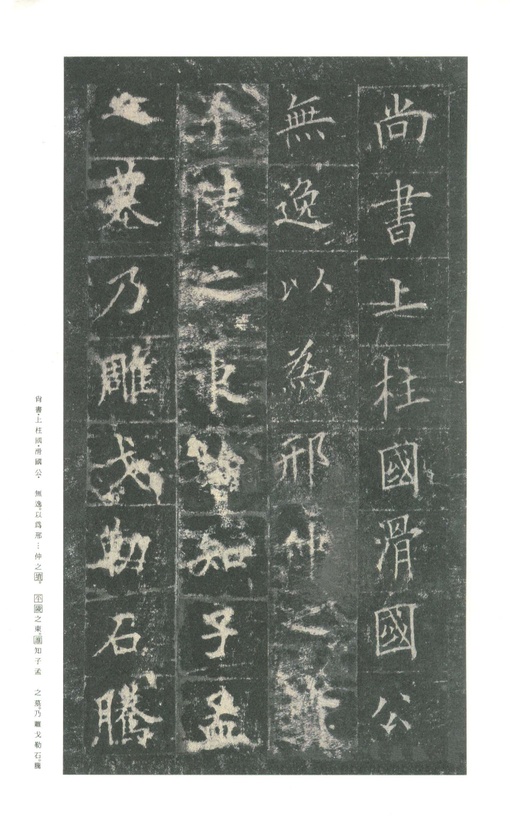 尚書上柱國滑國公
無逸以為邢山之
平陵之東知子孟
之墓乃雕戈勒石騰
尚書・上柱國・滑國公・　無逸以爲邢…仲之　平陵之東。知子孟　之墓。乃雕戈勒石。騰